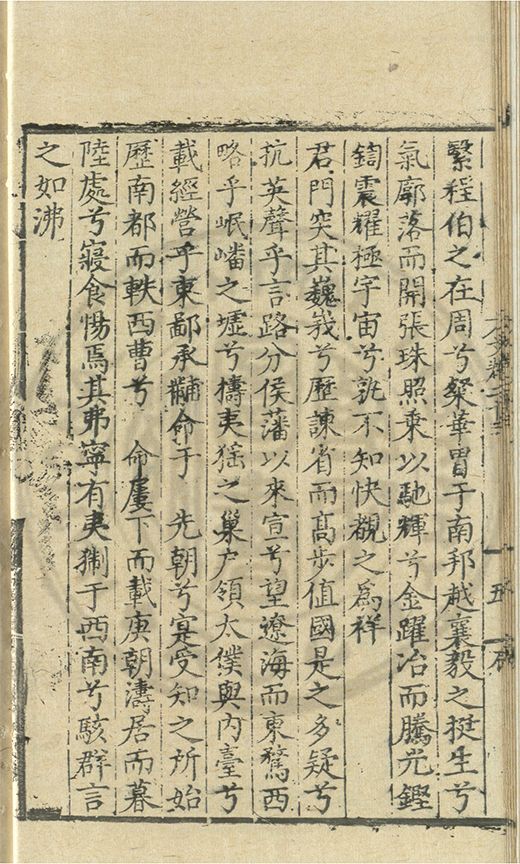 繄程伯之在周兮粲華胄于南邦越襄毅之挺生兮
氣廓落而開張珠照乘以馳輝兮金躍冶而騰光鏗
鍧震耀極宇宙兮孰不知快覩之為祥
君門突其巍峩兮歷諫省而高步值國是之多疑兮
抗英聲乎言路分侯藩以來宣兮望遼海而東騖西
略乎岷嶓之墟兮擣夷猺之巢户領太僕與内臺兮
載經營乎東鄙承黼命于 先朝兮寔受知之所始
歷南都而軼西曹兮 命屢下而載庚朝濤居而暮
陸處兮寢食惕焉其弗寧有夷猘于西南兮駭群言
之如沸